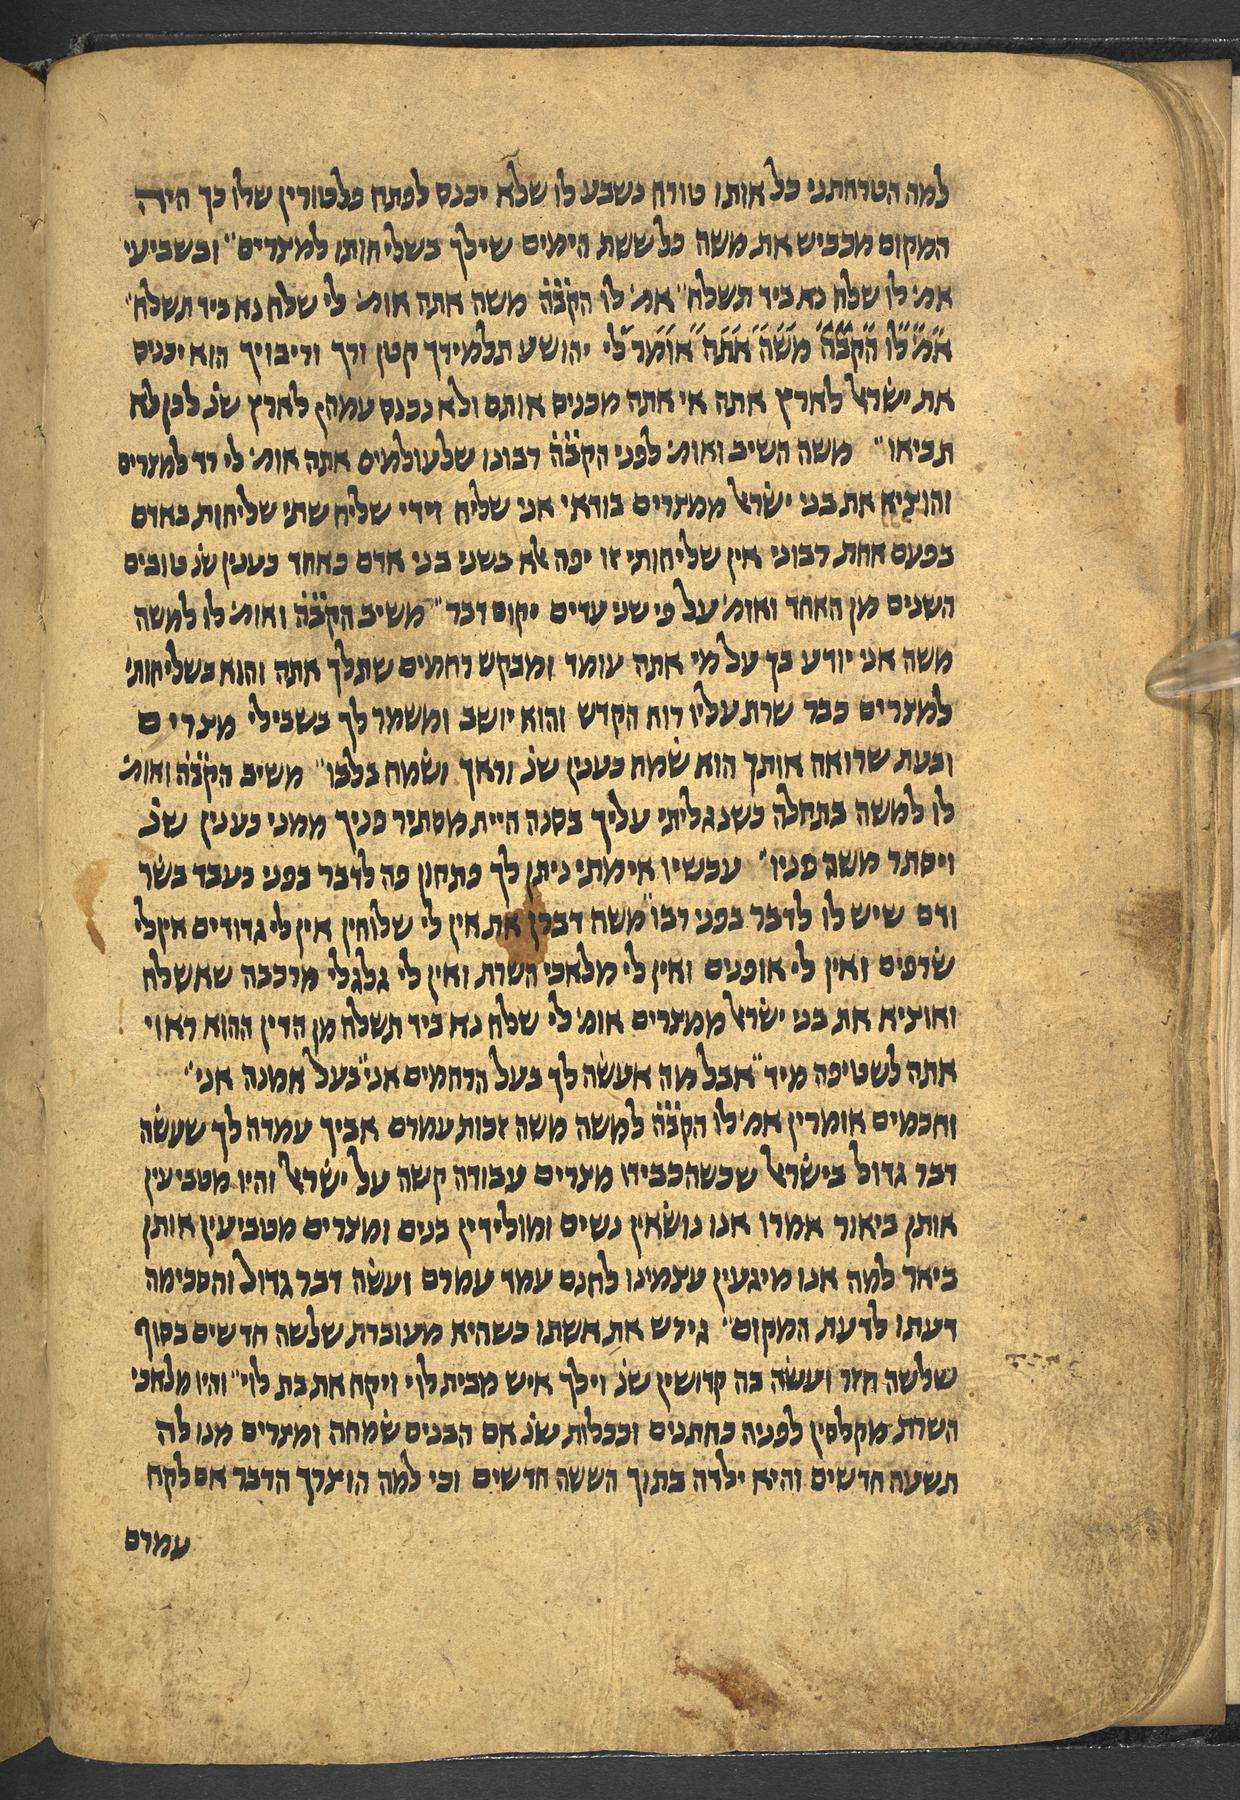 למה הטרחתני כל אותו טורח נשבע לו שלא יכנס לפתח פלטורין שלו כך היה
המקום מכביש את משה כל ששת הימים שילך בשליחותו למצרים״ ובשביעי
אמ׳ לו שלח נא ביד תשלח״ אמ׳ לו הקבֹּהֹ משה אתה אומ׳ לי שלח נא ביד תשלח״
אמ׳ לו הקבֹּהֹ משה אתה אומר לי יהושע תלמידך קטן ורך וריבויך הוא יכניס
את ישׂראל לארץ אתה אי אתה מכניס אותם ולא נכנס עמהן לארץ שנ׳ לכן לא
תביאו״ משה השיב ואומ׳ לפני הקבֹּהֹ רבונו שלעולמים אתה אומ׳ לי רד למצרים
והוציא את בני ישׂראל ממצרים בודאי אני שליח זידי שליח שתי שליחות באדם
בפעם אחת רבוני אין שליחותי זו יפה אלא בשני בני אדם כאחד כענין שנ׳ טובים
השנים מן האחד ואומ׳ על פי שני עדים יקום דבר״ משיב הקבֹּהֹ ואומ׳ לו למשה
משה אני יודע בך על מי אתה עומד ומבקש רחמים שתלך אתה והוא בשליחותי
למצרים כבר שרת עליו רוח הקדש והוא יושב ומשמר לך בשבילי מצרים
ובעת שרואה אותך הוא שׂמח כענין שנ׳ וראך ושׂמח בלבו״ משיב הקבֹּהֹ ואומ׳
לו למשה בתחלה כשנגליתי עליך בסנה היית מסתיר פניך ממני כענין שנ׳
ויסתר משה פניו״ עכשיו אימתי ניתן לך פתחון פה לדבר בפני כעבד בשׂר
ודם שיש לו לדבר בפני רבו״ משה דברן את אין לי שלוחין אין לי גדודים אין לי
שׂרפים ואין לי אופנים ואין לי מלאכי השרת ואין לי גלגלי מרכבה שאשלח
ואוציא את בני ישׂראל ממצרים אומ׳ לי שלח נא ביד תשלח מן הדין ההוא ראוי
אתה לשטיפה מיד״ אבל מה אעשׂה לך בעל הרחמים אני״ בעל אמנה אני״
וחכמים אומרין אמ׳ לו הקבֹּהֹ למשה משה זכות עמרם אביך עמדה לך שעשׂה
דבר גדול בישׂראל שכשהכבידו מצרים עבודה קשה על ישׂראל והיו מטביעין
אותן ביאור אמרו אנו נושׂאין נשים ומולידין בנים ומצרים מטביעין אותן
ביאר למה אנו מיגעין עצמינו לחנם עמד עמרם ועשׂה דבר גדול והסכימה
דעתו לדעת המקום״ גירש את אשתו כשהיא מעוברת שלשה חדשים בסוף
שלשה חזר ועשׂה בה קדושין שנ׳ וילך איש מבית לוי ויקח את בת לוי״ והיו מלאכי
השרת מקלסין לפניה כחתנים וככלות שנ׳ אם הבנים שׂמחה ומצרים מנו לה
תשעה חדשים והיא ילדה בתוך הששה חדשים וכי למה הוצרך הדבר אם לקח
עמרם